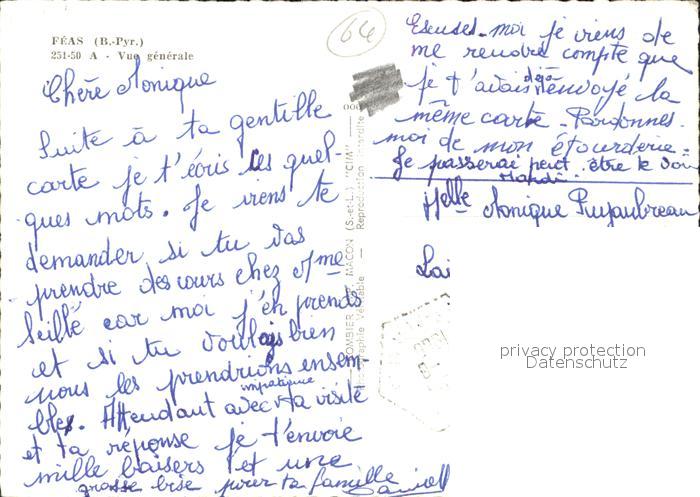 FÉAS (B.-Pyr.)
251-50 A - Vue générale
64
Chère Monique
Suite à ta gentille
carte je t'écris ces quel-
ques mots. Je viens te
demander si tu vas
prendre des cours chez Mme
Seillé car moi j'en prends
et si tu voulais bien
nous les prendrions ensem-
ble. Attendant avec impatience ta visite
et ta réponse je t'envoie
mille baisers et une
grosse bise pour ta famille
COMBIER MACON (S.-et-L.) "CIM"
Photographie Véritable - Reproduction interdite
Excuses-moi je viens de
me rendre compte que
je t'avais déjà envoyé la
même carte - Pardonnes-
moi de mon étourderie -
Je passerai peut-être te voir
Mardi
Melle Monique
privacy protection
Datenschutz